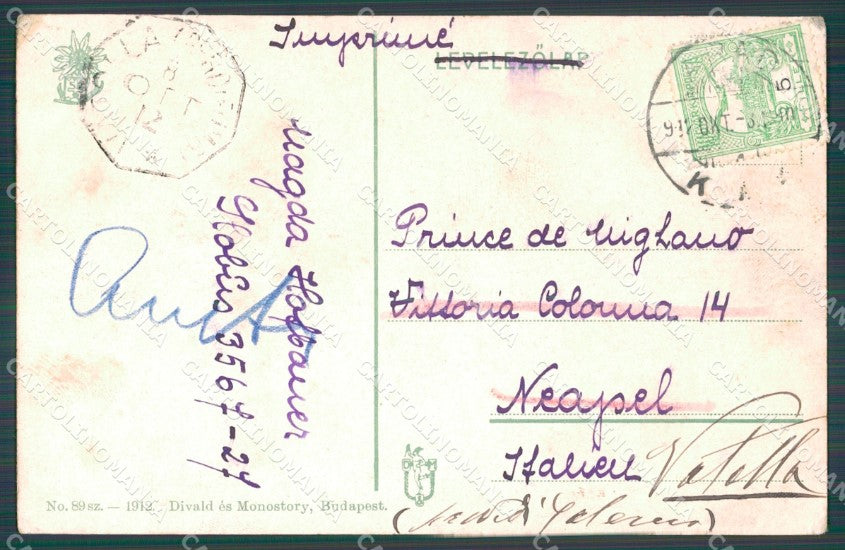 Imprimé
LEVELEZŐLAP
LA
8
OTT
12
Magda Hofbauer
Globus 3567-27
Prince de Migliano
Vittoria Colonna 14
Neapel
Italien
Vatolla
No. 89 sz. — 1912. Divald és Monostory, Budapest.
CARTOLINOMANIA